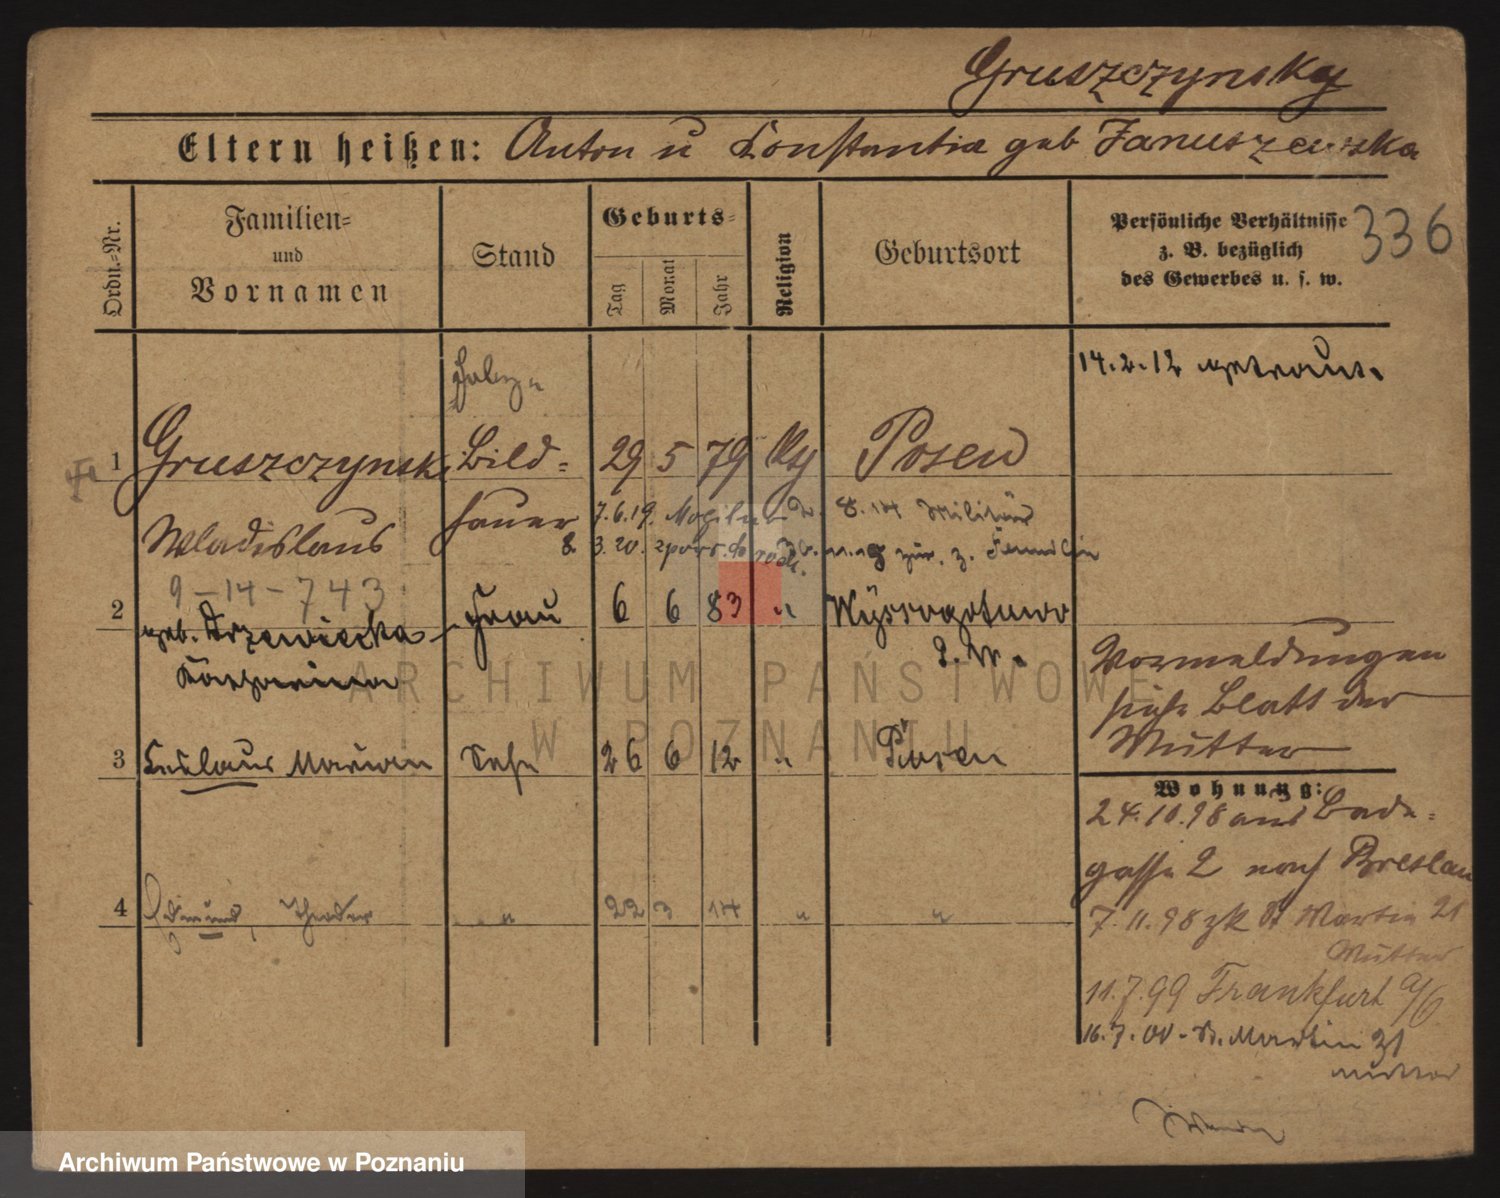 Gruszczynsky
Eltern heißen: Anton u Konstantia geb Januszewska
336
Ordn.-Nr.
Familien-
und
Vornamen
Stand
Geburts-
Tag
Monat
Jahr
Religion
Geburtsort
Persönliche Verhältnisse
z. B. bezüglich
des Gewerbes u. s. w.
14.2.12 getraut.
1 Gruszczynski Bild- 29 5 79 Posen
Wladislaus hauer
7.6.19. 2. 8.14 Militär
3.20.
9-14-743
2 geb. Drzewiecka Frau 6 6 83 "
Katharina
Vormeldungen
siehe Blatt der
Mutter
3 Marian Sohn 26 6 12 " Posen
Wohnung:
24.10.98 aus Bade-
gasse 2 nach Breslau
4 Edmund, Theodor " 22 3 14 " "
7.11.98 zk St Martin 21
Mutter
11.7.99 Frankfurt a/O
16.7.00 - St. Martin 31
Mutter
ARCHIWUM PAŃSTWOWE
W POZNANIU
Archiwum Państwowe w Poznaniu